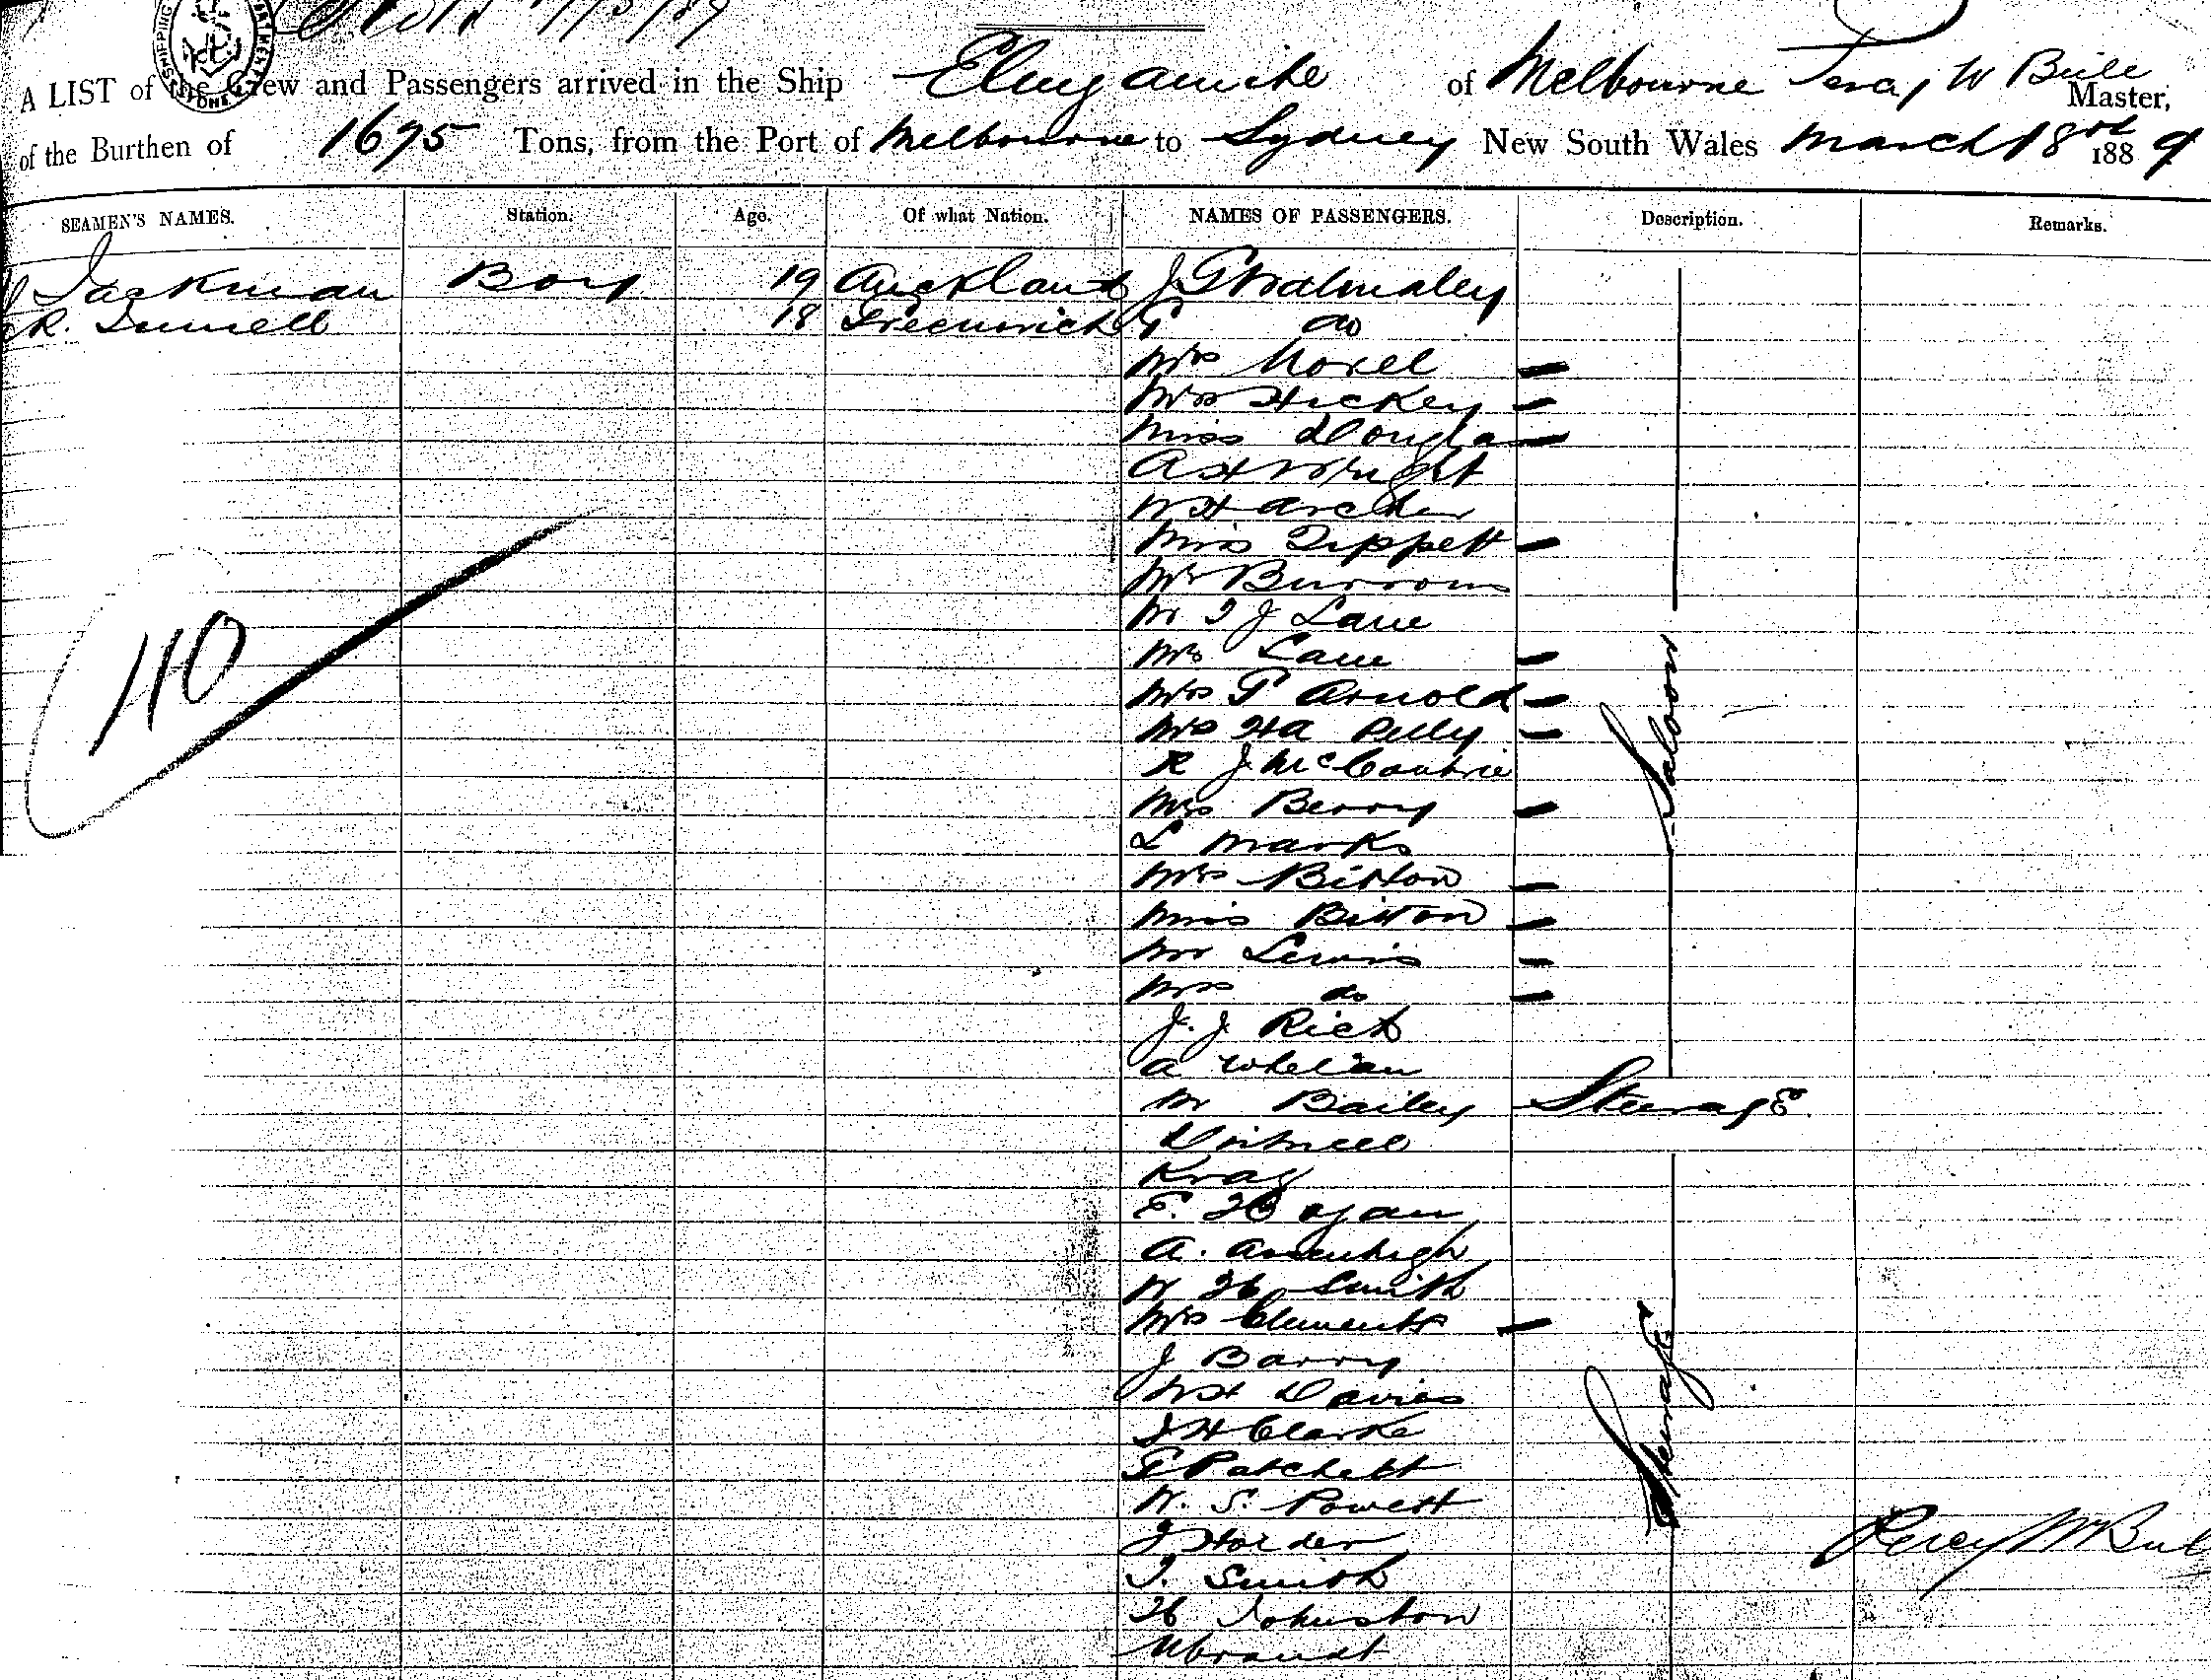 A LIST of the Crew and Passengers arrived in the Ship Elingamite of Melbourne Percy W Bull Master,
of the Burthen of 1675 Tons, from the Port of Melbourne to Sydney New South Wales March 18 1889
SEAMEN'S NAMES. Station. Age. Of what Nation. NAMES OF PASSENGERS. Description. Remarks.
Jackman Boy 19 Auckland J. G Walmsley
R. 18 Greenwich do
Mrs
Mrs Hickey
Miss Dougla
A H Wright
W H Archer
Miss Tippett
Mr Burrows
Mr T J Lane
Mrs Lane
Mrs Arnold
Mrs H A
R J
Mrs Berry
L Marks
Mrs Bitton
Miss Bitton
Mr Lewis
Mrs do
J. J. Rich
A Whelan
Saloon
Mr Bailey Steerage
Krag
E. Hogan
A.
W H Smith
Mrs Clements
J Barry
W H Davies
J H Clarke
Patchett
W. S. Powell
J Holder
T. Smith
H Johnston
Steerage
110
Percy W Bull